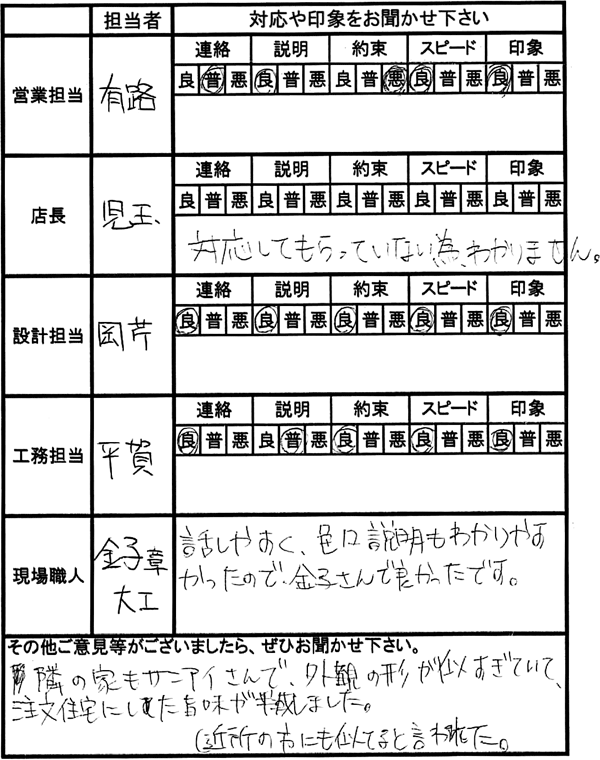 担当者 対応や印象をお聞かせ下さい
営業担当 有路 連絡 説明 約束 スピード 印象
良 普 悪 良 普 悪 良 普 悪 良 普 悪 良 普 悪
店長 児玉 連絡 説明 約束 スピード 印象
良 普 悪 良 普 悪 良 普 悪 良 普 悪 良 普 悪
対応してもらっていない為、わかりません。
設計担当 岡芹 連絡 説明 約束 スピード 印象
良 普 悪 良 普 悪 良 普 悪 良 普 悪 良 普 悪
工務担当 平賀 連絡 説明 約束 スピード 印象
良 普 悪 良 普 悪 良 普 悪 良 普 悪 良 普 悪
現場職人 金子章
大工
話しやすく、説明もわかりやす
かったので、金子さんで良かったです。
その他ご意見等がございましたら、ぜひお聞かせ下さい。
隣の家もサンアイさんで、外観の形が似すぎていて、
注文住宅にした旨味が半減しました。
(近所の方にも似てると言われた。